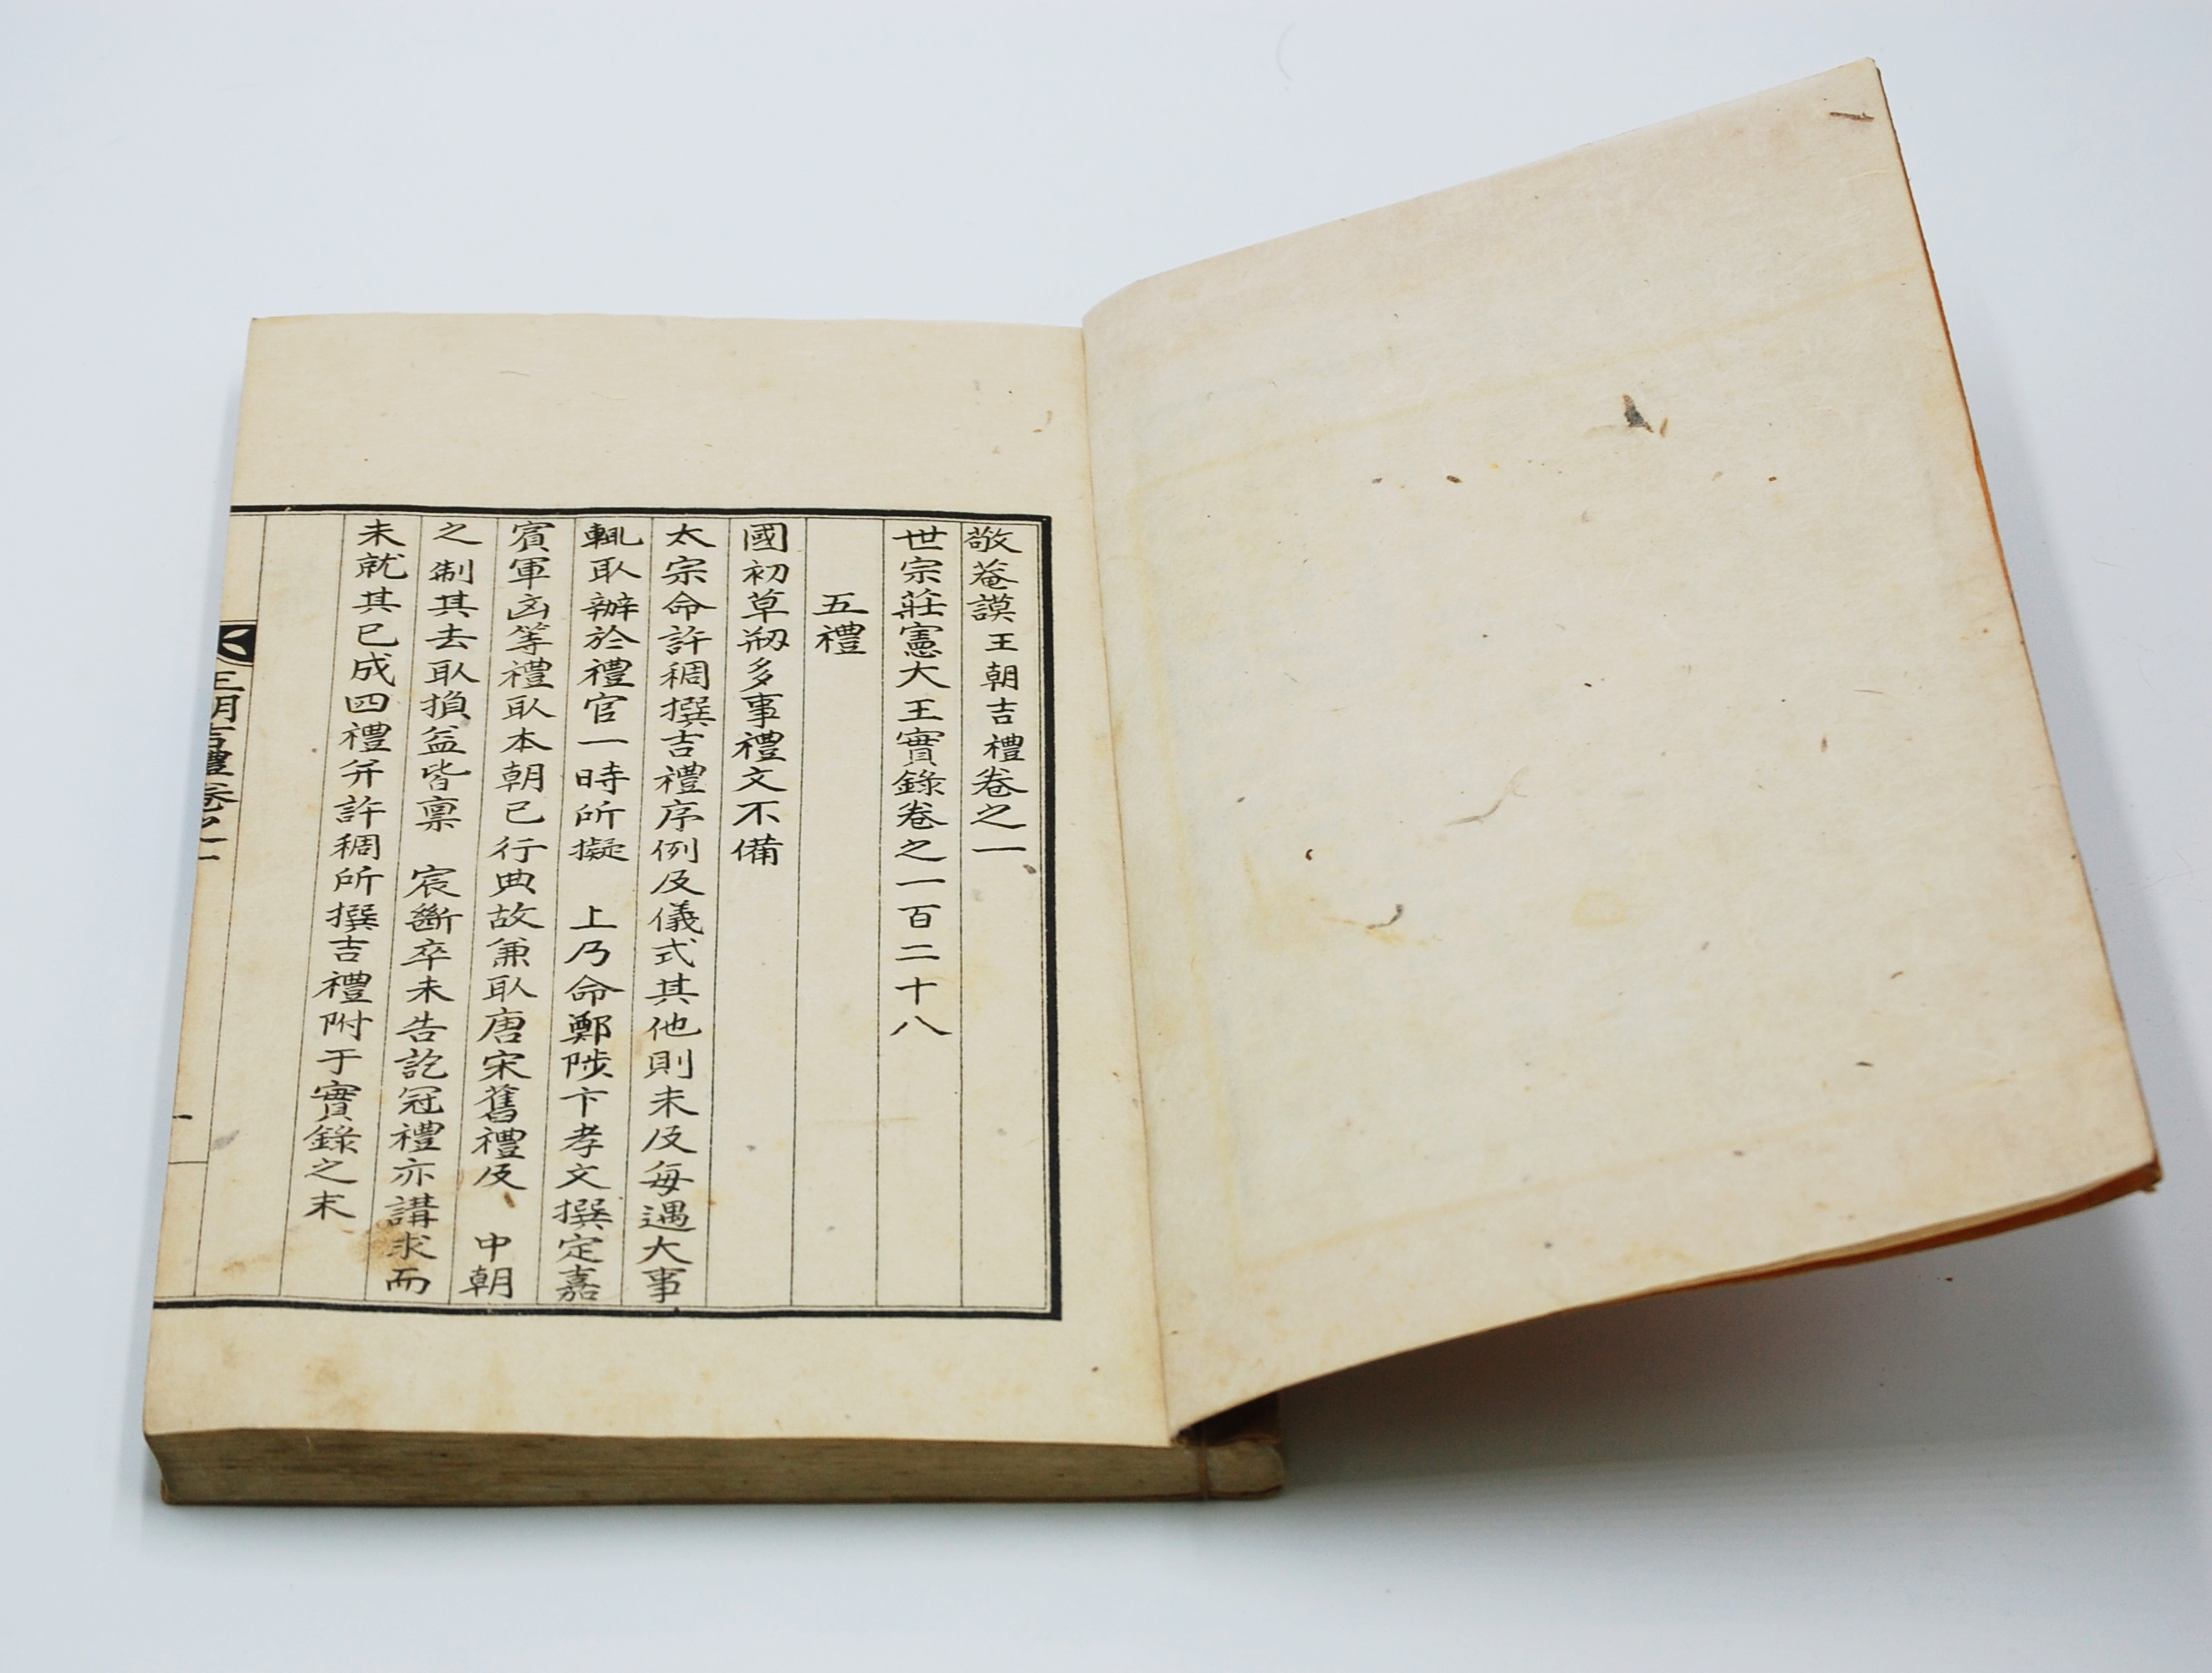 敬菴謨王朝吉禮卷之一
世宗莊憲大王實錄卷之一百二十八
五禮
國初草刱多事禮文不備
太宗命許稠撰吉禮序例及儀式其他則未及每遇大事
輒取辦於禮官一時所擬 上乃命鄭陟卞孝文撰定嘉
賓軍凶等禮取本朝已行典故兼取唐宋舊禮及 中朝
之制其去取損益皆禀 宸斷卒未告訖冠禮亦講求而
未就其已成四禮幷許稠所撰吉禮附于實錄之末
王朝吉禮卷之一
一